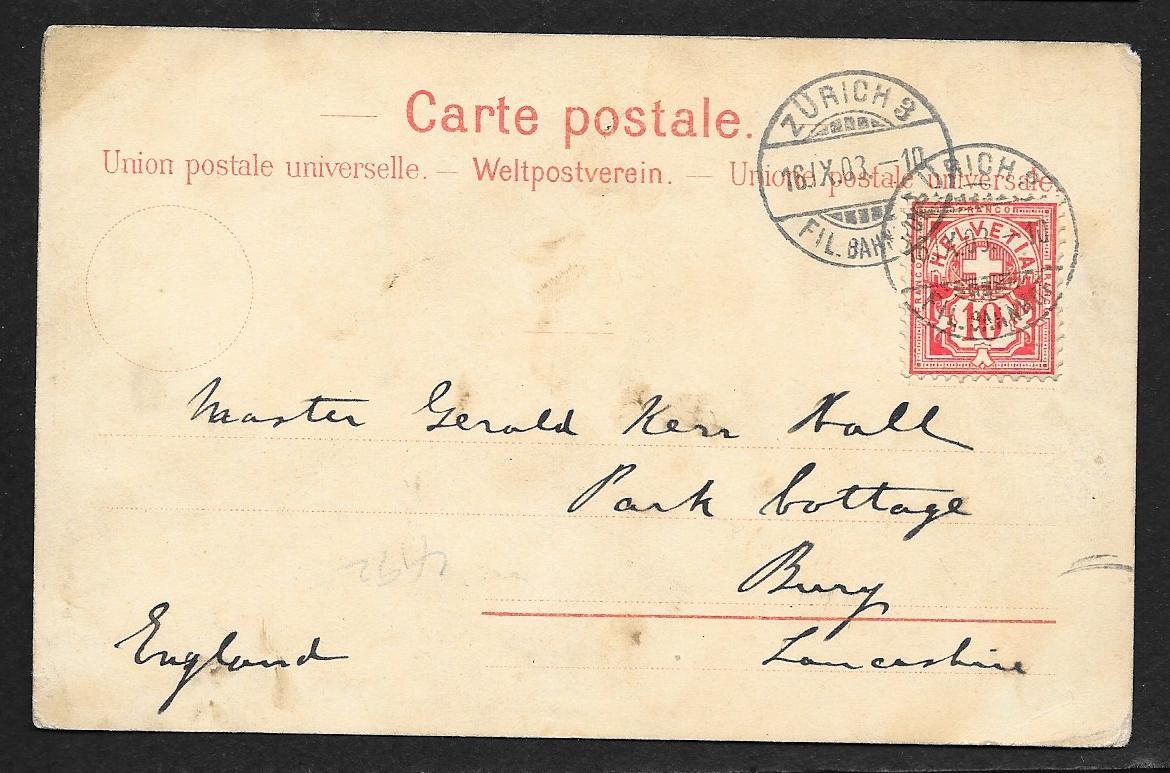 Carte postale.
Union postale universelle. — Weltpostverein. — Unione postale universale.
ZÜRICH 3
16.IX.03.–10
FIL. BAHNHOF
ZÜRICH 3
10
FIL. BAHNHOF
FRANCO
HELVETIA
10
Master Gerald Kerr Hall
Park Cottage
Bury
Lancashire
England